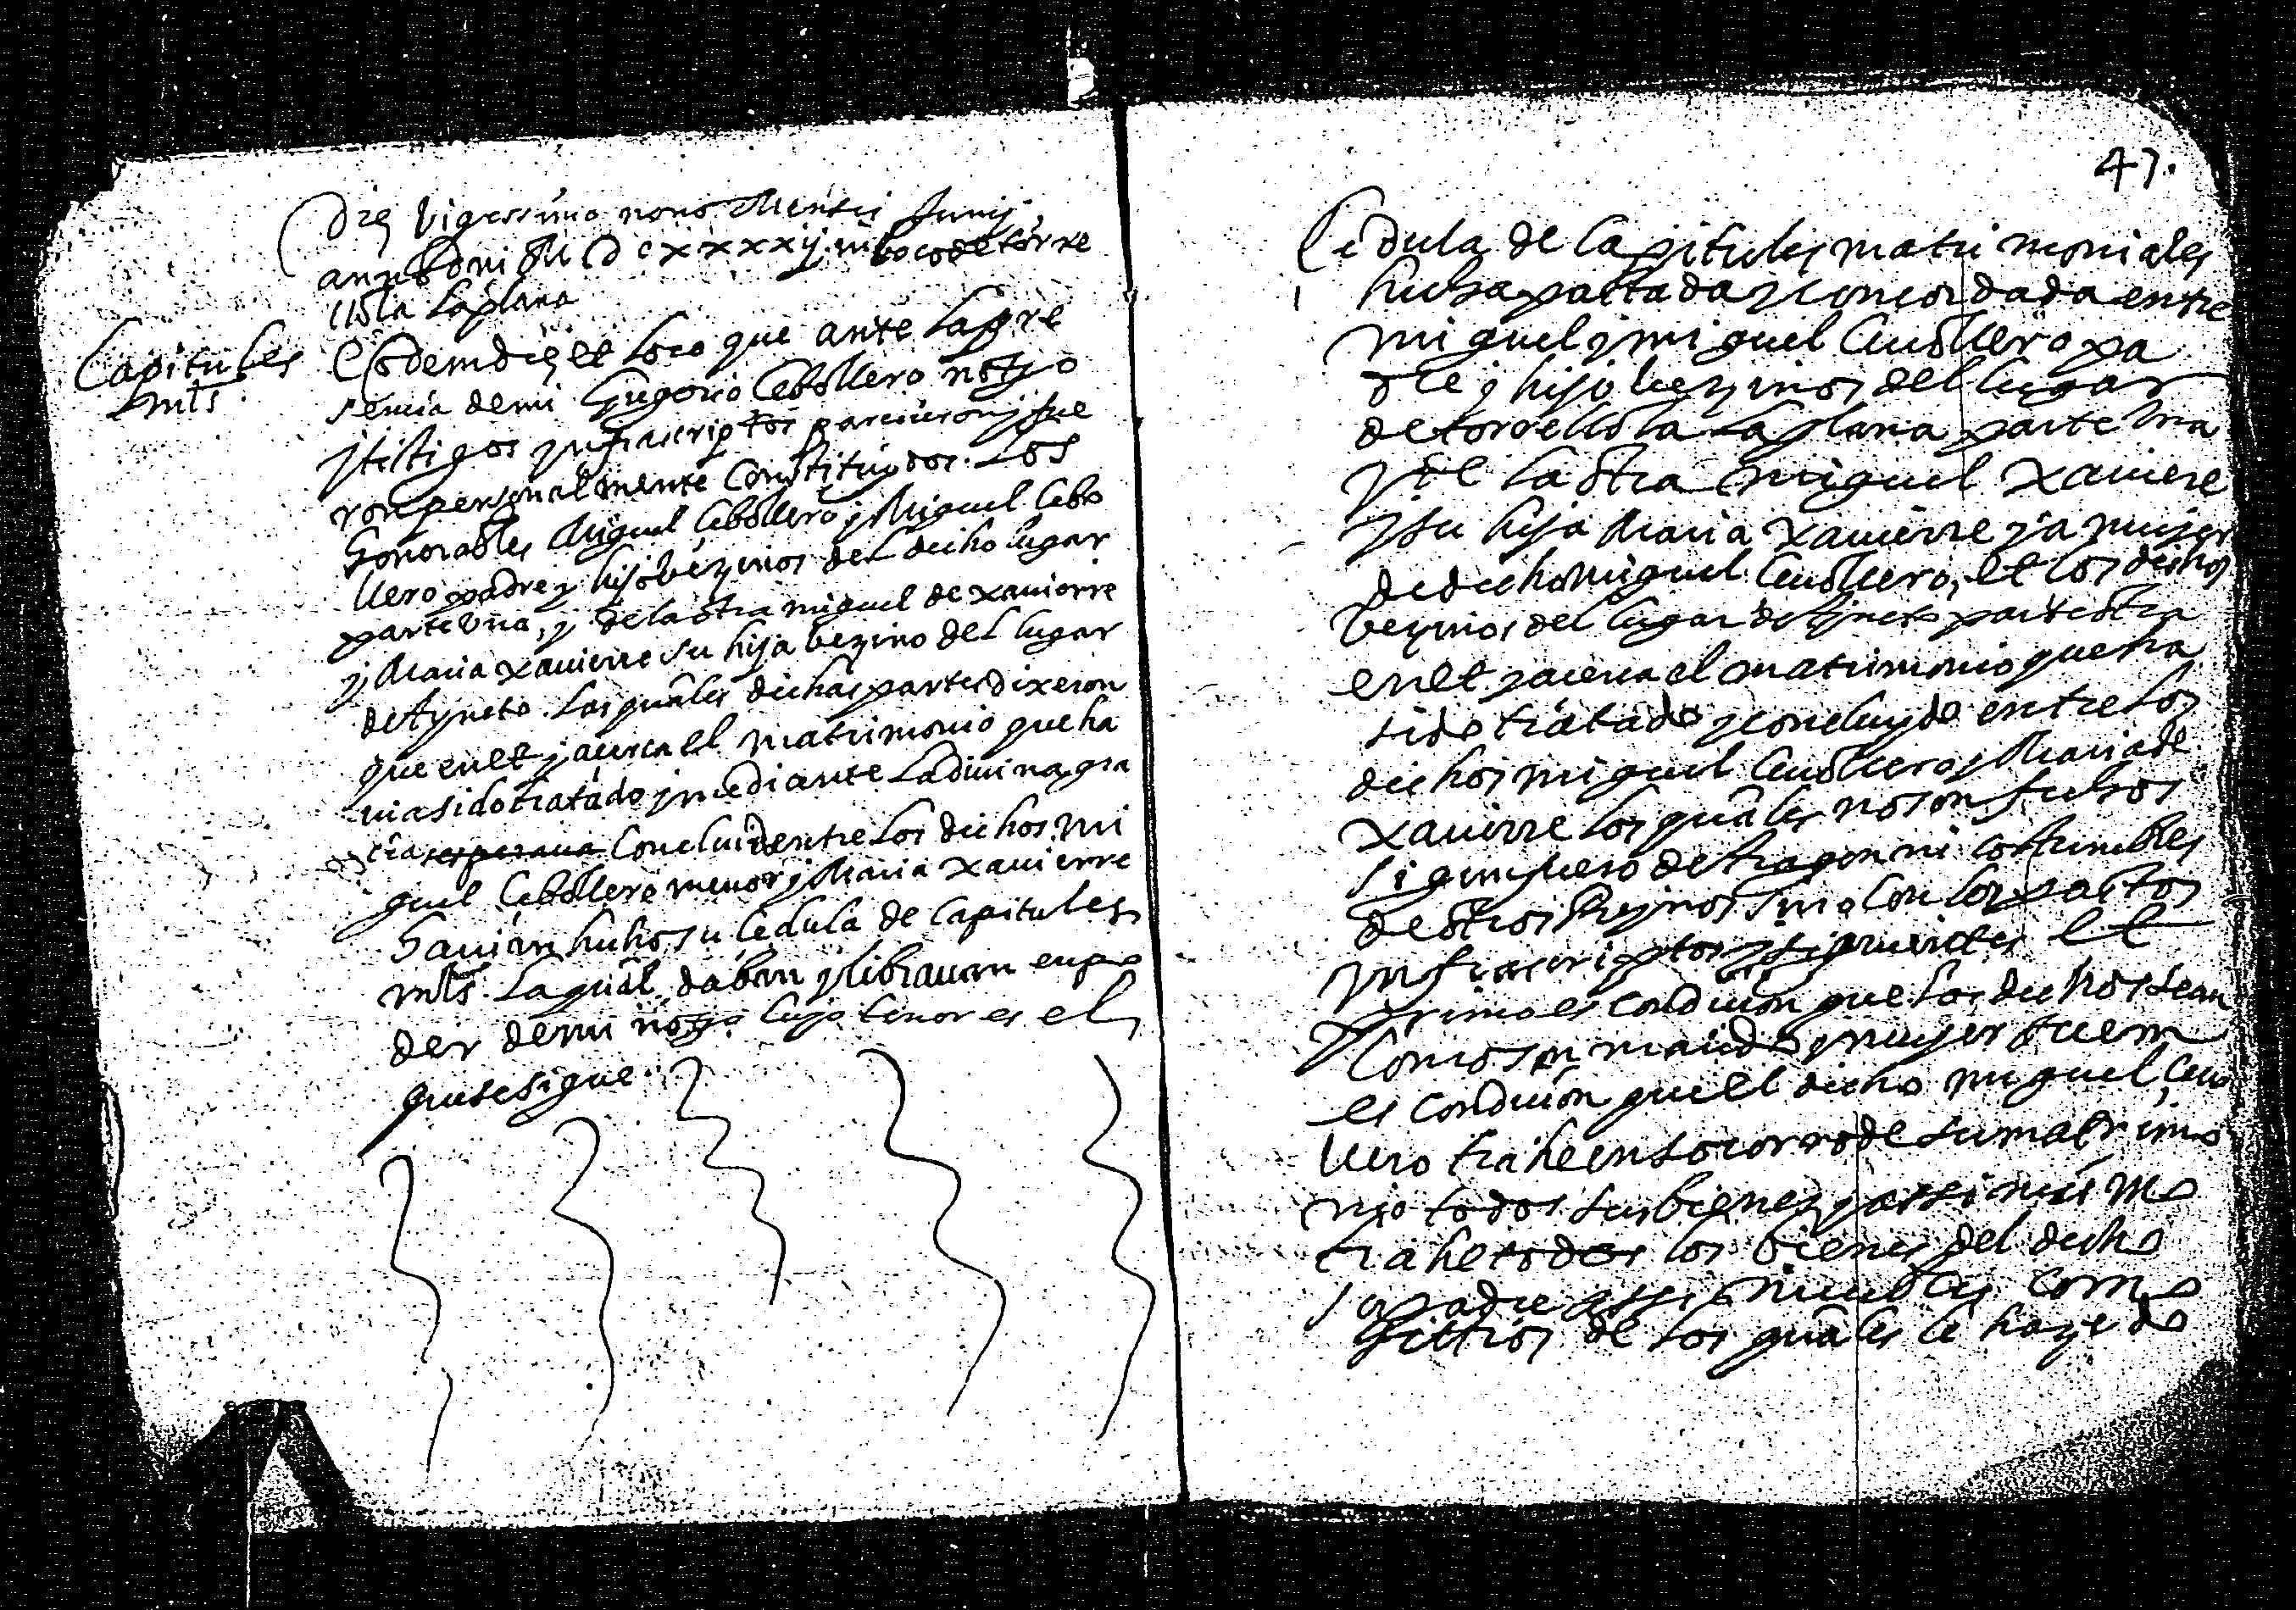 Die Vigessimo nono Mensis Junij
anno Dni M D c x x x x ij in loco de torre
llola laplana
Capitules
mts
Eodem die et loco que ante la pre
sencia de mi Gregorio Cebollero notº
y testigos infrascriptos parecieron y fue
ron personalmente Constituydos. Los
honorables Miguel Cebollero y Miguel Cebo
llero padre y hijo bezinos del dicho lugar
parte una, y de la otra miguel de xauierre
y Maria xauierre su hija bezino del lugar
de Ayneto. Las quales dichas partes dixeron
que en et y acerca el matrimonio que ha
uia sido tratado y mediante la diuina gra
cia Concluido entre los dichos mi
guel Cebollero menor y Maria xauierre
hauian hecho su cedula de Capitules
mts. La qual daban y libraban en po
der de mi notº cuyo tenor es el
que se sigue.
47.
Cedula de Capitules matrimoniales
hecha pactada y concordada entre
miguel y miguel Ceuollero pa
dre y hijo bezinos del lugar
de torrellola la plana parte una
y de la otra miguel xauierre
y su hija Maria xauierre ya mujer
de dicho Miguel Ceuollero, et los dichos
bezinos del lugar de Ayneto parte otra
en et y acerca el matrimonio que ha
sido tratado y concluydo entre los
dichos miguel Ceuollero y Maria de
xauierre los quales no son fechos
sigun fuero de Aragon ni costumbres
de otros Reynos sino con los pactos
infrascriptos y siguientes et
primo es condicion que los dichos sean
Como son marido y mujer Item
es condicion que el dicho miguel Ceuo
llero trahe en socorro de su matrimo
nio todos sus bienes y assi mismo
trahe todos los bienes del dicho
su padre assi muebles como
sittios de los quales le haze do